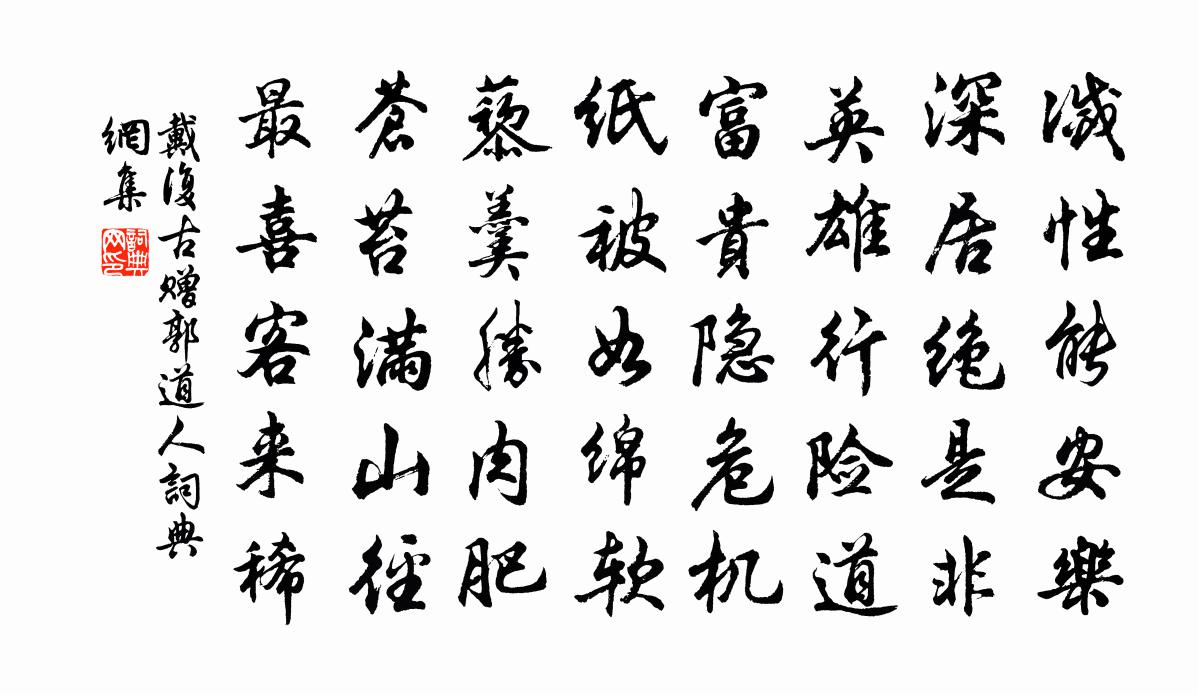 滅性能安樂
深居绝是非
英雄行险道
富貴隐危机
纸被如绵软
藜羹勝肉肥
蒼苔满山徑
最喜客来稀
戴復古赠郭道人詞典
網集
詞典
网印